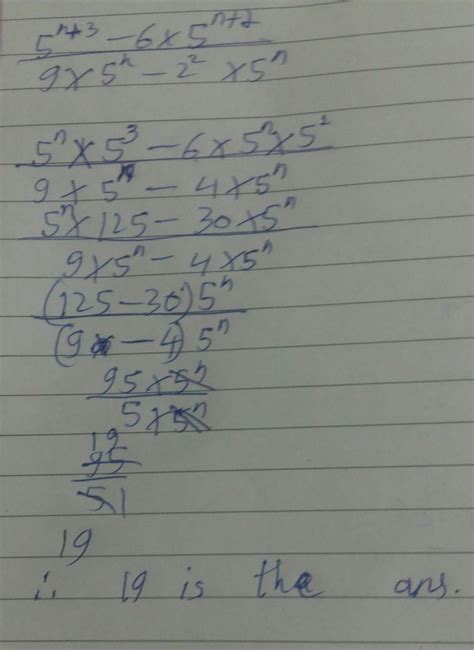 5^{n+3} - 6 × 5^{n+1}
9 × 5^n - 2^2 × 5^n
5^n × 5^3 - 6 × 5^n × 5^1
9 × 5^n - 4 × 5^n
5^n × 125 - 30 × 5^n
9 × 5^n - 4 × 5^n
(125 - 30) 5^n
(9 - 4) 5^n
95 × 5^n
5 × 5^n
19
95
5 1
19
∴ 19 is the ans.